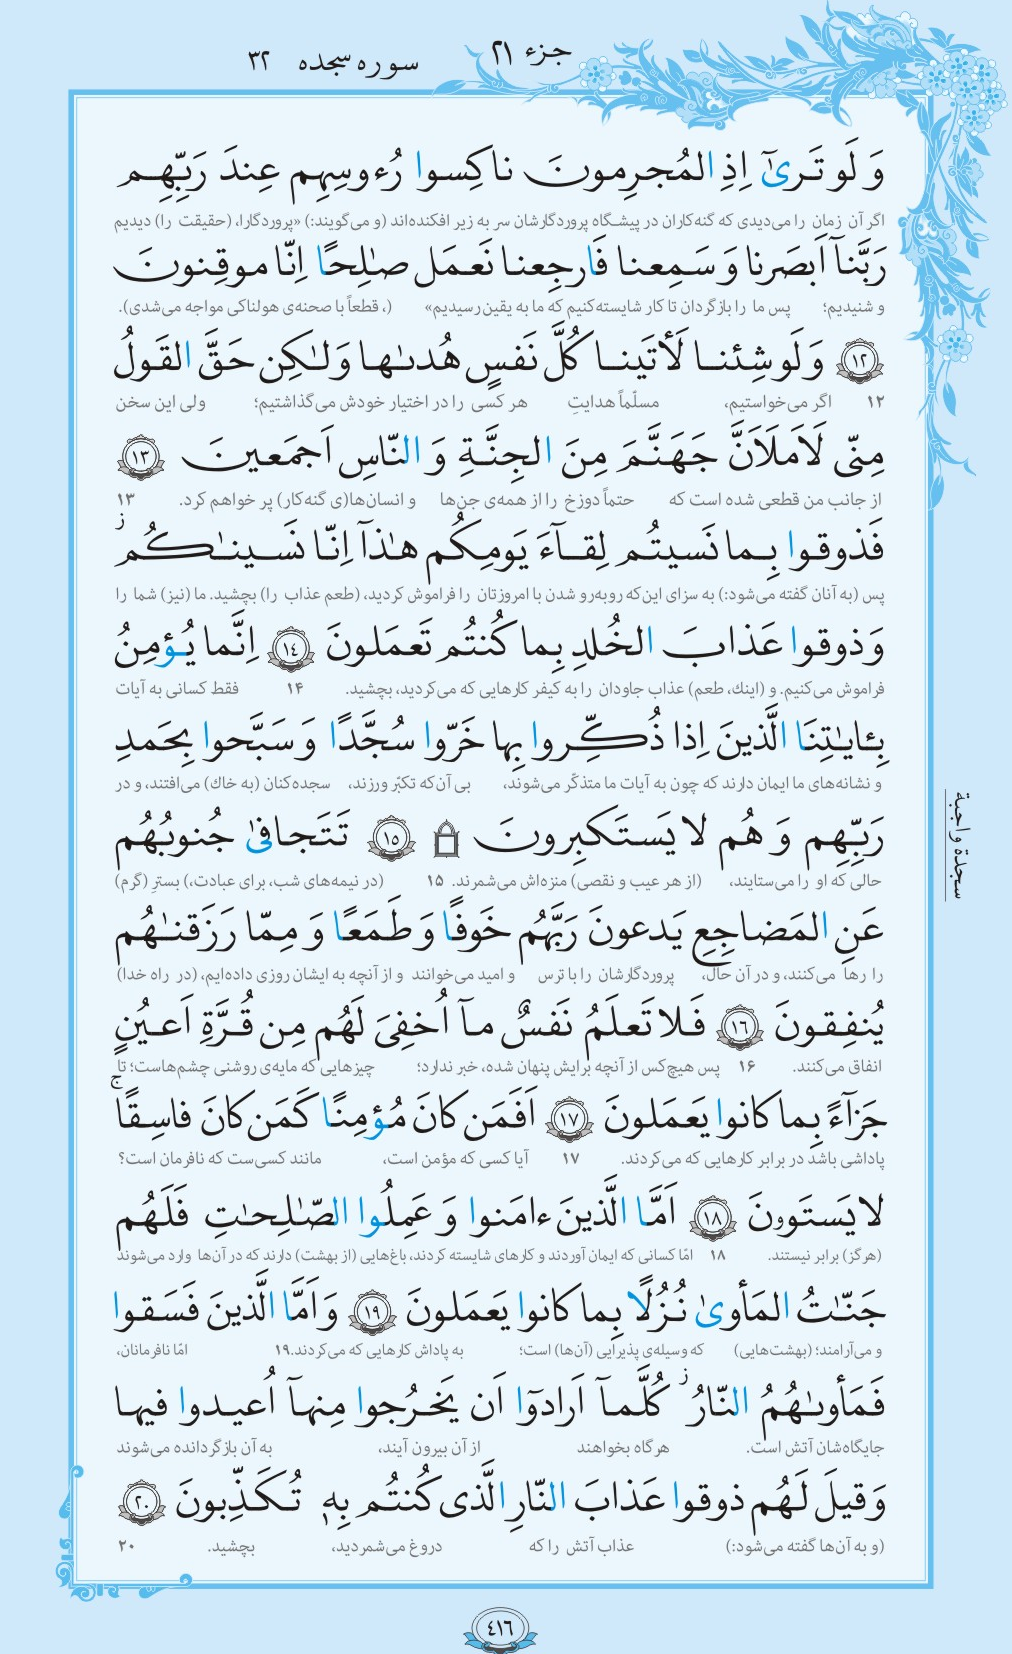 جزء ۲۱
سوره سجده ۳۲
وَ لَو تَرىٰٓ اِذِ المُجرِمونَ ناکِسوا رُءوسِهِم عِندَ رَبِّهِم
اگر آن زمان را می‌دیدی که گنه‌کاران در پیشگاه پروردگارشان سر به زیر افکنده‌اند (و می‌گویند:) «پروردگارا، (حقیقت را) دیدیم
رَبَّنآ اَبصَرنا وَ سَمِعنا فَارجِعنا نَعمَل صٰلِحًا اِنّا موقِنونَ
و شنیدیم؛ پس ما را بازگردان تا کار شایسته کنیم که ما به یقین رسیدیم» (، قطعاً با صحنه‌ی هولناکی مواجه می‌شدی).
﴿١٢﴾ وَلَو شِئنا لَأتَینا کُلَّ نَفسٍ هُدىٰها وَلٰکِن حَقَّ القَولُ
۱۲ اگر می‌خواستیم، مسلّماً هدایتِ هر کسی را در اختیار خودش می‌گذاشتیم؛ ولی این سخن
مِنّی لَاَملَاَنَّ جَهَنَّمَ مِنَ الجِنَّةِ وَ النّاسِ اَجمَعینَ ﴿١٣﴾
از جانب من قطعی شده است که حتماً دوزخ را از همه‌ی جن‌ها و انسان‌ها(ی گنه‌کار) پر خواهم کرد. ۱۳
فَذوقوا بِما نَسیتُم لِقآءَ یَومِکُم هٰذآ اِنّا نَسینٰکُم ز
پس (به آنان گفته می‌شود:) به سزای این‌که روبه‌رو شدن با امروزتان را فراموش کردید، (طعم عذاب را) بچشید. ما (نیز) شما را
وَ ذوقوا عَذابَ الخُلدِ بِما کُنتُم تَعمَلونَ ﴿١٤﴾ اِنَّما یُؤمِنُ
فراموش می‌کنیم. و (اینك، طعم) عذاب جاودان را به کیفر کارهایی که می‌کردید، بچشید. ۱۴ فقط کسانی به آیات
بِـٔایٰتِنَا الَّذینَ اِذا ذُکِّروا بِها خَرّوا سُجَّدًا وَ سَبَّحوا بِحَمدِ
و نشانه‌های ما ایمان دارند که چون به آیات ما متذکّر می‌شوند، بی آن‌که تکبّر ورزند، سجده‌کنان (به خاك) می‌افتند، و در
رَبِّهِم وَ هُم لا یَستَکبِرونَ ﴿١٥﴾ تَتَجافىٰ جُنوبُهُم
حالی که او را می‌ستایند، (از هر عیب و نقصی) منزه‌اش می‌شمرند. ۱۵ (در نیمه‌های شب، برای عبادت،) بسترِ (گرم)
سجدة واجبة
عَنِ المَضاجِعِ یَدعونَ رَبَّهُم خَوفًا وَ طَمَعًا وَ مِمّا رَزَقنٰهُم
را رها می‌کنند، و در آن حال، پروردگارشان را با ترس و امید می‌خوانند و از آنچه به ایشان روزی داده‌ایم، (در راه خدا)
یُنفِقونَ ﴿١٦﴾ فَلا تَعلَمُ نَفسٌ مآ اُخفِیَ لَهُم مِن قُرَّةِ اَعیُنٍ
انفاق می‌کنند. ۱۶ پس هیچ‌کس از آنچه برایش پنهان شده، خبر ندارد؛ چیزهایی که مایه‌ی روشنی چشم‌هاست؛ تا
جَزآءً بِما کانوا یَعمَلونَ ﴿١٧﴾ اَفَمَن کانَ مُؤمِنًا کَمَن کانَ فاسِقًا ج
پاداشی باشد در برابر کارهایی که می‌کردند. ۱۷ آیا کسی که مؤمن است، مانند کسی‌ست که نافرمان است؟
لا یَستَوونَ ﴿١٨﴾ اَمَّا الَّذینَ ءامَنوا وَ عَمِلُوا الصّٰلِحٰتِ فَلَهُم
(هرگز) برابر نیستند. ۱۸ امّا کسانی که ایمان آوردند و کارهای شایسته کردند، باغ‌هایی (از بهشت) دارند که در آن‌ها وارد می‌شوند
جَنّٰتُ المَأوىٰ نُزُلًا بِما کانوا یَعمَلونَ ﴿١٩﴾ وَ اَمَّا الَّذینَ فَسَقوا
و می‌آرامند؛ (بهشت‌هایی) که وسیله‌ی پذیرایی (آن‌ها) است؛ به پاداش کارهایی که می‌کردند.۱۹ امّا نافرمانان،
فَمَأوىٰهُمُ النّارُ ز کُلَّمآ اَرادوٓا اَن یَخرُجوا مِنهآ اُعیدوا فیها
جایگاه‌شان آتش است. هرگاه بخواهند از آن بیرون آیند، به آن بازگردانده می‌شوند
وَ قیلَ لَهُم ذوقوا عَذابَ النّارِ الَّذی کُنتُم بِهٖ تُکَذِّبونَ ﴿٢٠﴾
(و به آن‌ها گفته می‌شود:) عذاب آتش را که دروغ می‌شمردید، بچشید. ۲۰
٤١٦